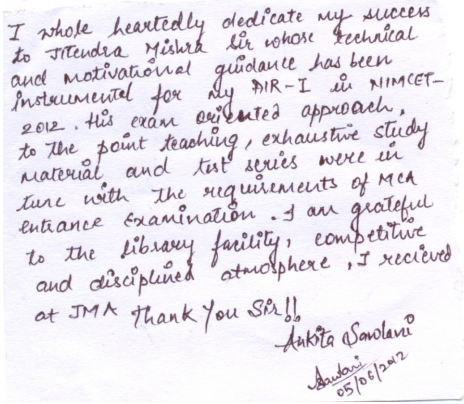 I whole heartedly dedicate my success
to Jitendra Mishra Sir whose technical
and motivational guidance has been
instrumental for my AIR-I in NIMCET-
2012. His exam oriented approach,
to the point teaching, exhaustive study
material and test series were in
tune with the requisements of MCA
entrance Examination. I am grateful
to the library facility, competitive
and disciplined atmosphere, I recieved
at JMA Thank You Sir!!
Ankita Savolani
05/06/2012